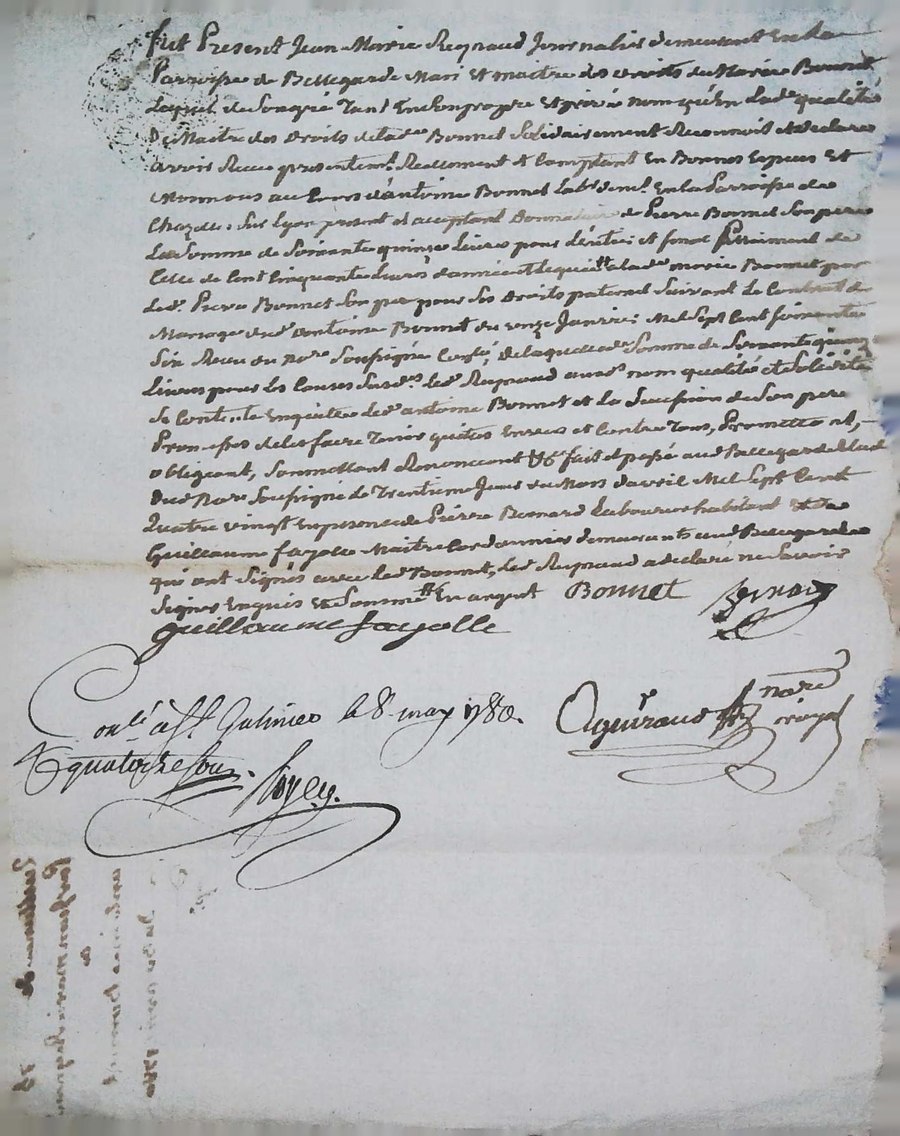 fut Present Jean Marie Reynaud Journalier demeurant En la
Parroisse de Bellegarde Mari Et maitre des droits de Marie Bonnet
Lequel de Son gré tant En Son propre Et privé nom qu'En lad.e qualité
De Maitre des Droits de lad.e Bonnet Solidairement Reconnoit et declare
avoir Receu presentem.t Reellement & Comptant En Bonnes Especes Et
au Cours d'antoine Bonnet Lab.r dem.t En la Parroisse de
Chazelle Sur Lyon present et acceptant Donnataire de Pierre Bonnet Son pere
La Somme de Soixante quinze Livres pour L'entier et final Paiment de
Celle de Cent Cinquante Livres a lad.e marie Bonnet par
led.t Pierre Bonnet Son pere pour Ses Droits paternel Suivant Le Contrat de
Mariage dud.t antoine Bonnet du onze Janvier Mil Sept Cent Soixante
Six Receu du no.re Soussigné de laquelle d.e Somme de Soixante quinze
Livres pour Les Causes Susd.es led.t Reynaud aux d.s nom qualité et Solidité
Se Contente Enquitte led.t antoine Bonnet et La Succession de Son pere
Promesses de les faire Tenir quittes Envers et Contre Tous, Promettant,
obligeant, Soumettant Renonceant &c fait et passé aud Bellegarde Etude
Du d.t No.re Soussigné le Trentieme Jour du Mois d'avril Mil Sept Cent
Quatre vingt En presence de Pierre Bernard Laboureur habitant Et de
Guillaume fayolle Maitre Cordonnier demeurants aud Bellegarde
qui ont Signés avec led.t Bonnet, led.t Reynaud a declaré ne Savoir
Signer Enquis Et Sommé En acquet Bonnet Bernard
guillaume fayolle
Con.lé à S.t Galmier le 8 may 1780.
R quatorze Sous.
Aguiraud no.re royal